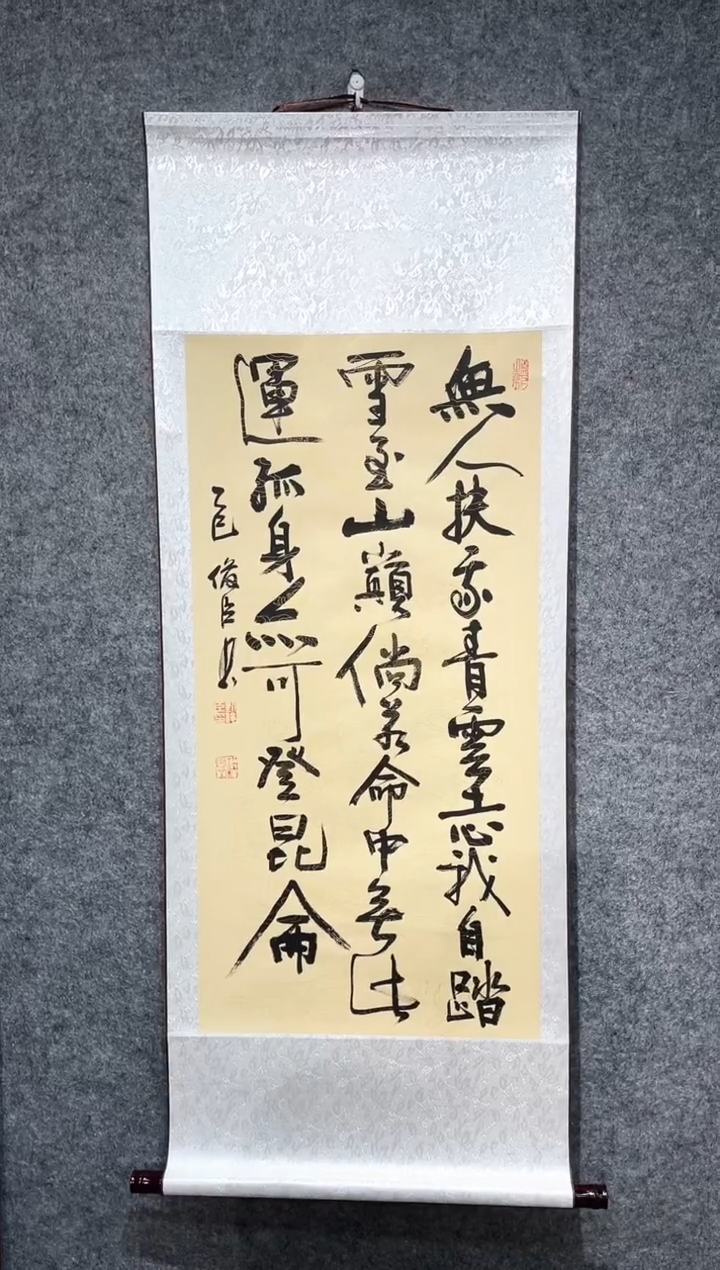 無人扶我青雲志我自踏
雪至山巔倘若命中無此
運孤身亦可登昆侖
乙巳俊臣書